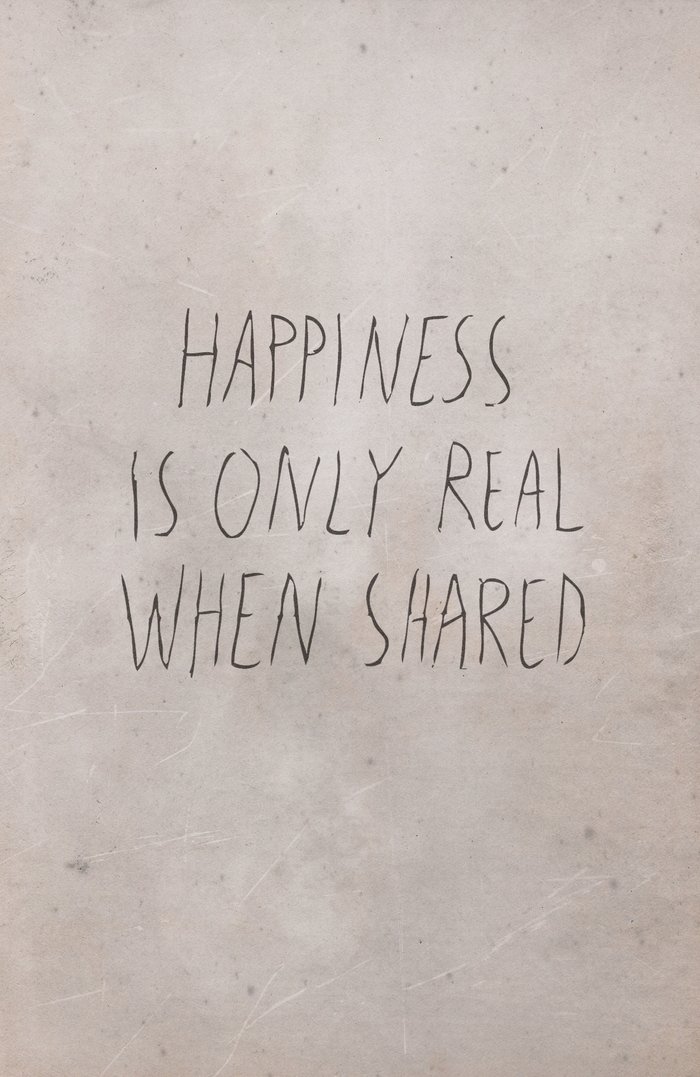 HAPPINESS
IS ONLY REAL
WHEN SHARED